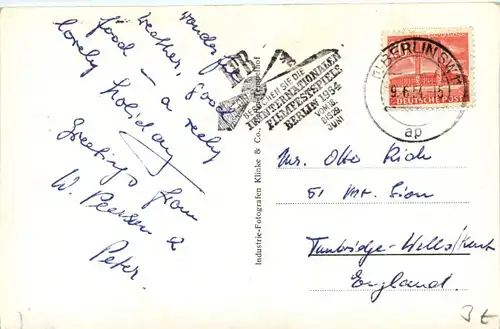 Wonderful
weather, good
food – a really
lovely holiday
Greetings from
W. Peersen &
Peter.
BESUCHEN SIE DIE
INTERNATIONALEN
FILMFESTSPIELE
BERLIN 1954
VOM 18.
BIS 29.
JUNI
BERLIN SW 11
9.6.54.-15
ap
DEUTSCHE POST
Industrie-Fotografen Klinke & Co.,
Mr. Otto Rich
51 Mt. Sion
Tunbridge-Wells/Kent
England.